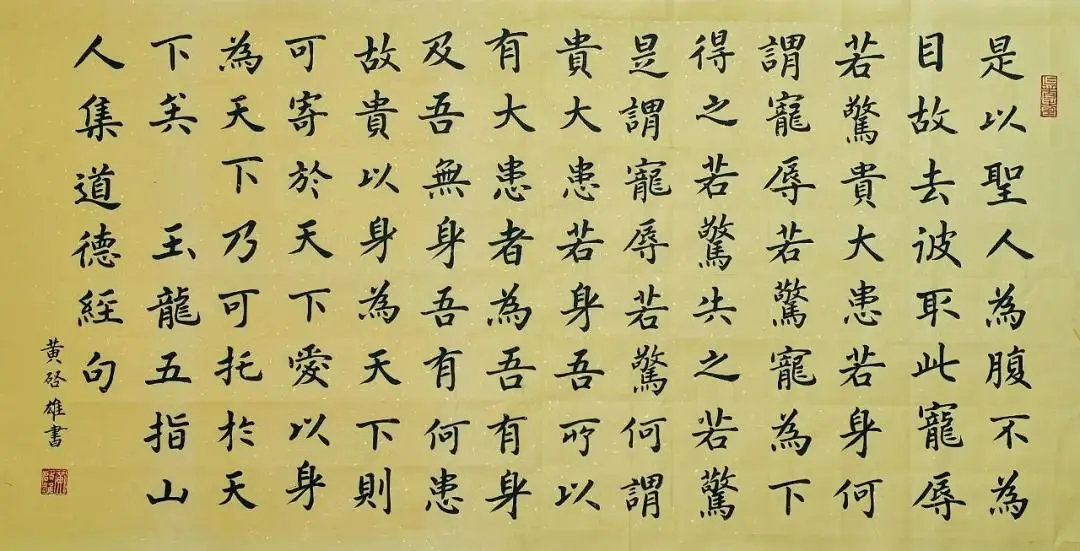 是以聖人為腹不為
目故去彼取此寵辱
若驚貴大患若身何
謂寵辱若驚寵為下
得之若驚失之若驚
是謂寵辱若驚何謂
貴大患若身吾所以
有大患者為吾有身
及吾無身吾有何患
故貴以身為天下則
可寄於天下愛以身
為天下乃可托於天
下矣 玉龍五指山
人集道德經句
黄啓雄書